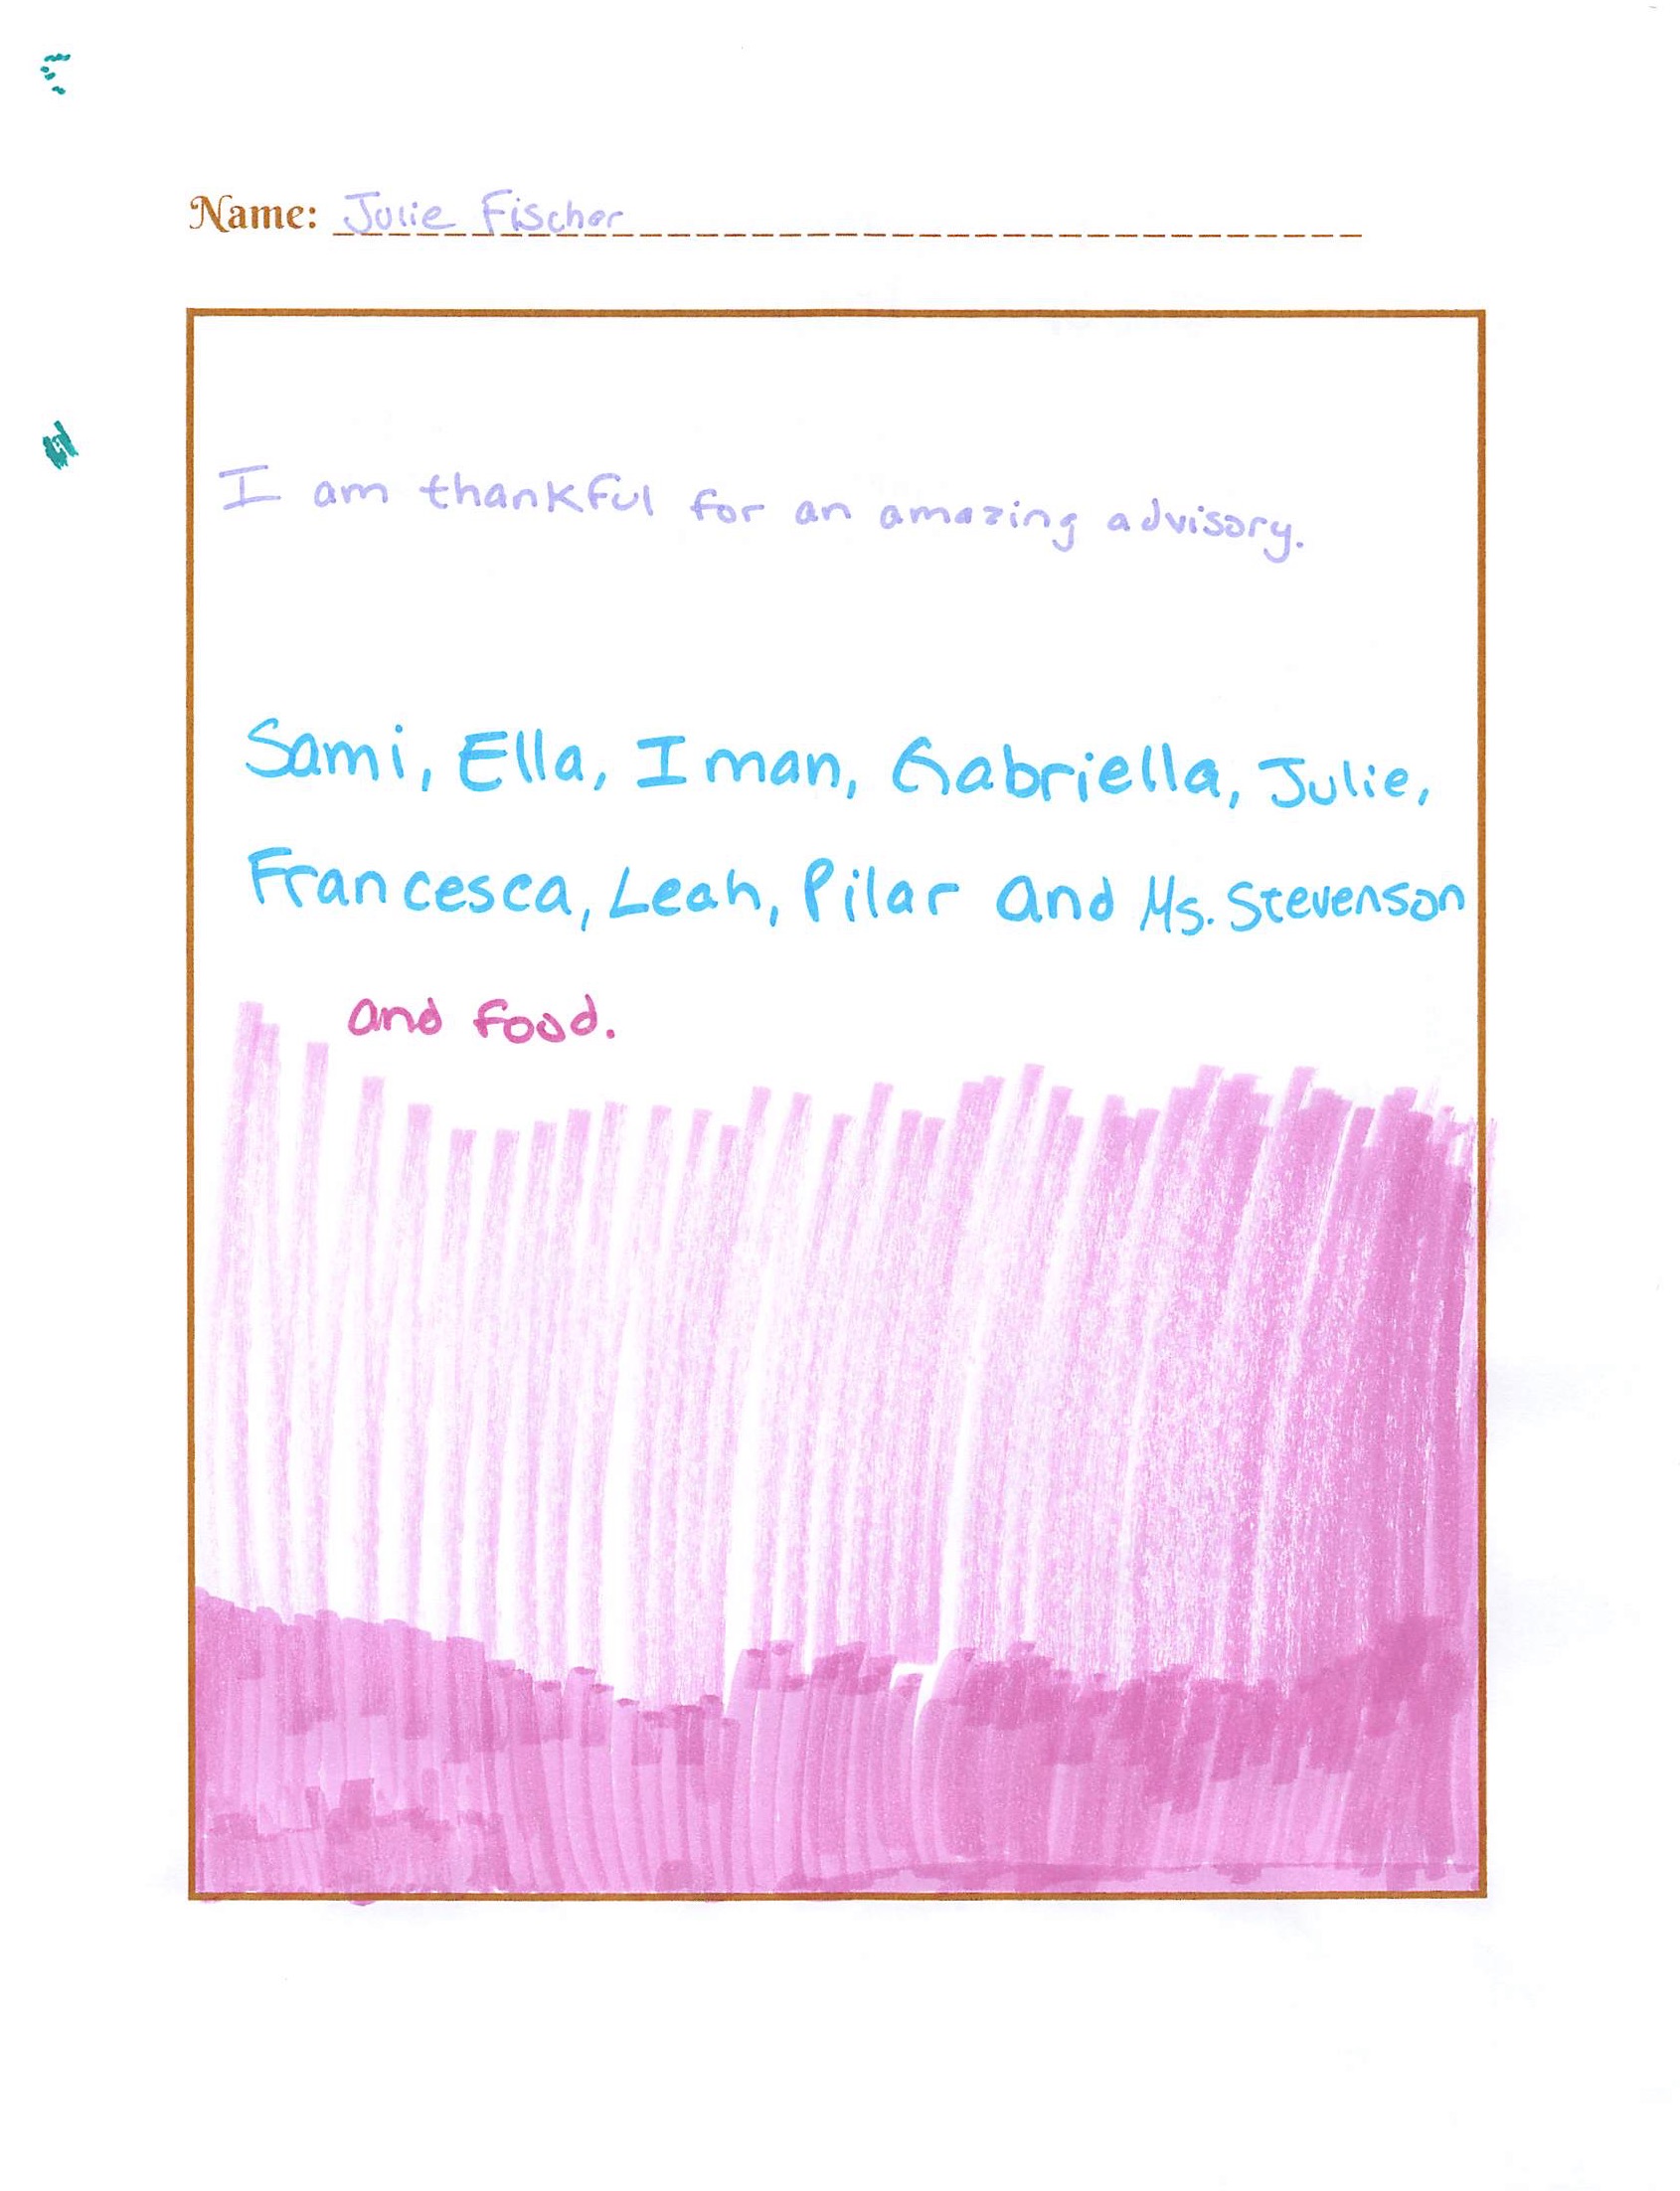 Name: Julie Fischer
I am thankful for an amazing advisory.
Sami, Ella, Iman, Gabriella, Julie,
Francesca, Leah, Pilar and Ms. Stevenson
and food.